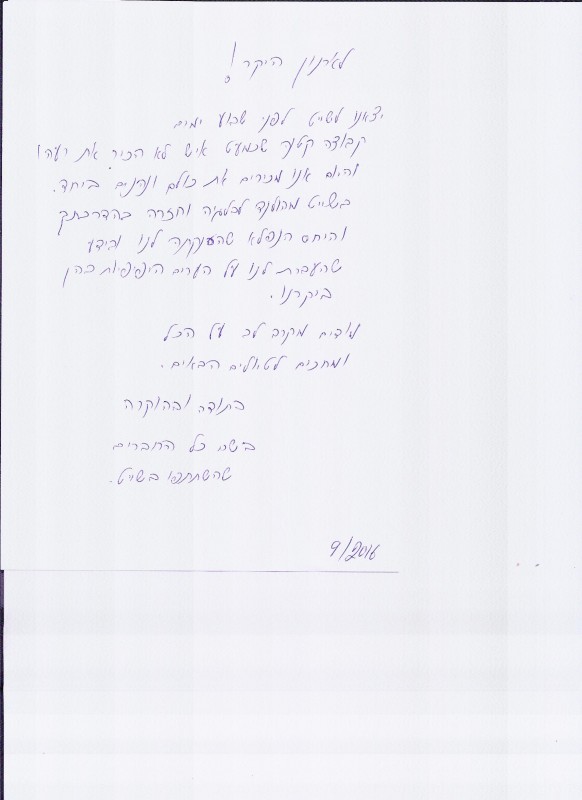 לארנון היקר!
יצאנו לשייט לפני שבוע ימים
קבוצה קטנה שכמעט איש לא הכיר את רעהו
והיום אנו מכירים את כולם ונהנים ביחד.
בשייט מהולנד לבלגיה וחזרה בהדרכתך
והיחס הנפלא שהענקתה לנו והידע
שהעברת לנו על הערים היפיפיות בהן
ביקרנו.
מודים מקרב לב על הכל
ומחכים לטיולים הבאים.
בתודה ובהוקרה
בשם כל החברים
שהשתתפו בשייט.
9/2016